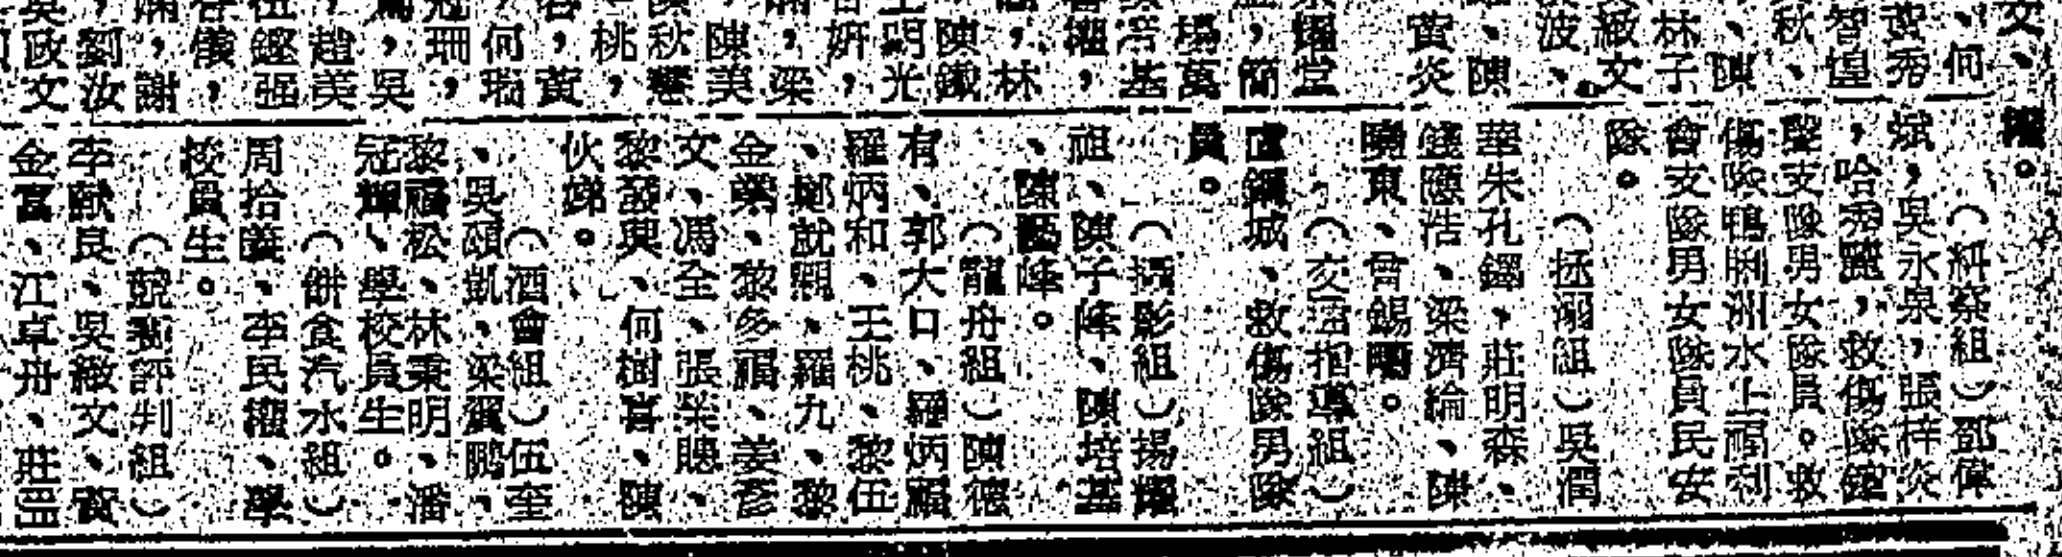 文、
、何
黄秀
智煌
秋、
、陳
林子
緻文
波、
、陳
黃炎
耀堂
，簡
楊萬
培基
權，
，林
陳鐵
明光
妍，
，梁
陳美
秋蕙
桃，
，黃
何瑞
珊，
，吳
趙美
鏗强
儀，
，謝
劉汝
政文
權。
（糾察組）鄧偉
斌，吳永泉，張梓炎
，哈秀麗，救傷隊鐘
聲支隊男女隊員。救
傷隊鴨脷洲水上福利
會支隊男女隊員民安
隊。
（拯溺組）吳潤
華朱孔鐸，莊明森、
錢應浩、梁濟綸、陳
曉東、曾錫暢。
（交通指導組）
盧錦城、救傷隊男隊
員。
（攝影組）揚耀
祖、陳子峰、陳培基
、陳國峰。
（龍舟組）陳德
有、郭大口、羅炳福
羅炳和、王桃、黎伍
、鄭就照、羅九、黎
金榮、黎多福、姜彥
文、馮全、張榮聰、
黎發興、何樹喜、陳
伙娣。
（酒會組）伍奎
、吳頌凱、梁翼鵬、
黎福松、林秉明、潘
冠輝、學校員生。
（餅食汽水組）
周拾義、李民權、學
校員生。
（競賽評判組）
李猷良、吳緻文、黃
金富、江卓舟、莊巴